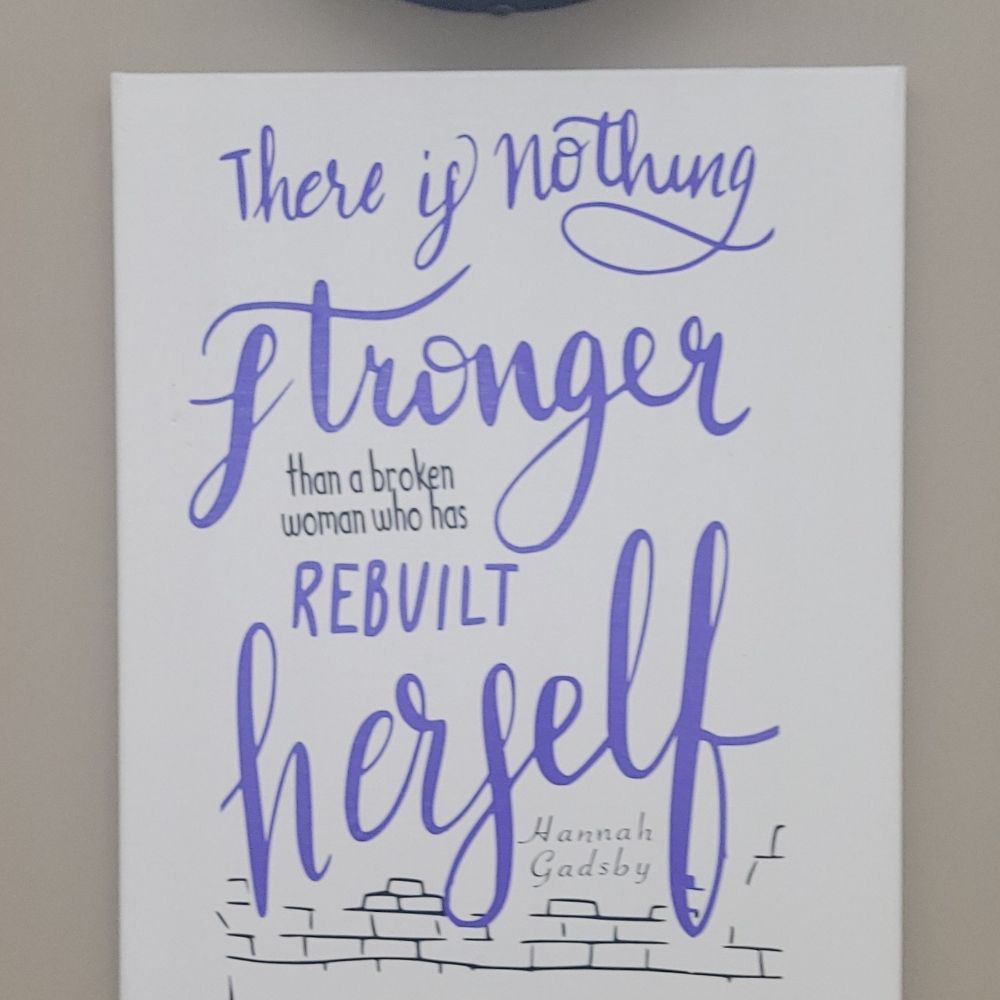 There is Nothing
stronger
than a broken
woman who has
REBUILT
herself
Hannah
Gadsby